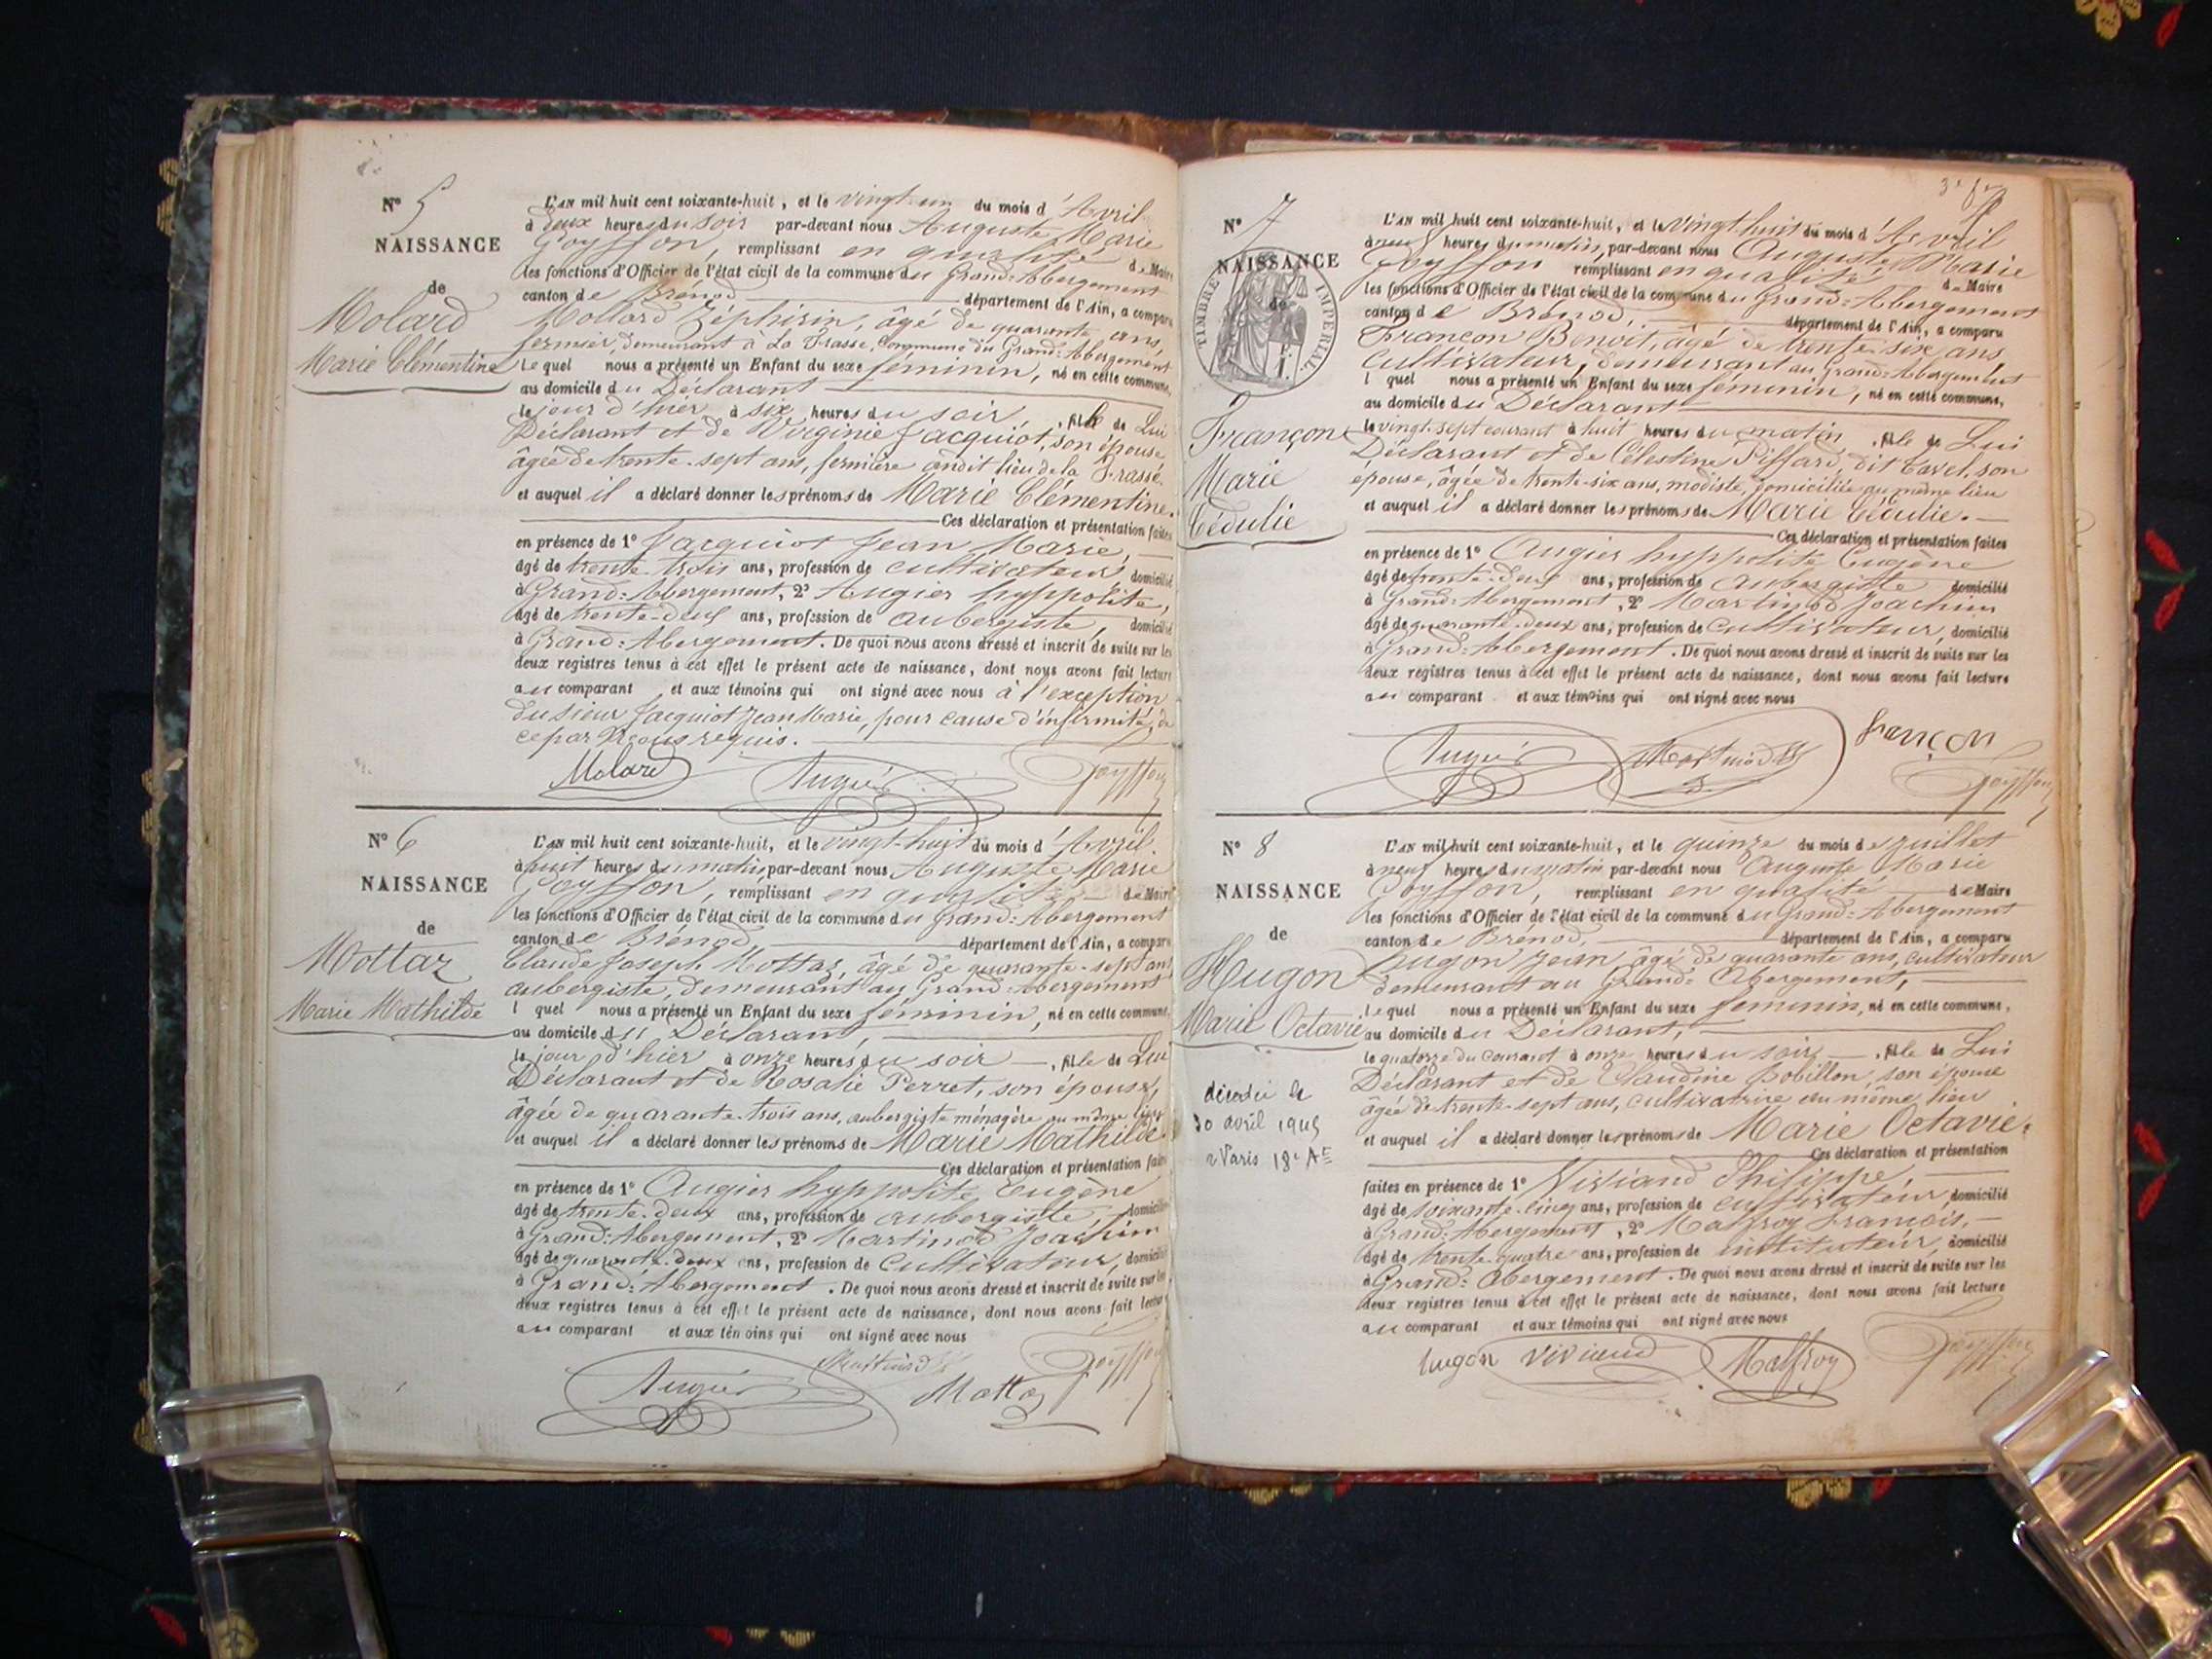 N° 5
NAISSANCE
de
Molard
Marie Clémentine
L'AN mil huit cent soixante-huit, et le vingt-un du mois d'Avril
à deux heures du soir par-devant nous Auguste Marie
Goyffon, remplissant en qualité de Maire
les fonctions d'Officier de l'état civil de la commune du Grand=Abergement
canton de Brénod département de l'Ain, a comparu
Mollard Zéphirin, âgé de quarante ans,
fermier, demeurant à La Frasse, commune du Grand=Abergement
Lequel nous a présenté un Enfant du sexe féminin, né en cette commune,
au domicile du Déclarant
le jour d'hier à six heures du soir, fille de Lui
Déclarant et de Virginie Jacquiot, son épouse
âgée de trente-sept ans, fermière audit lieu de la Frasse.
et auquel il a déclaré donner les prénoms de Marie Clémentine.
Ces déclaration et présentation faites
en présence de 1° Jacquiot Jean Marie,
âgé de trente-trois ans, profession de cultivateur, domicilié
à Grand=Abergement, 2° Augier hyppolite,
âgé de trente-deux ans, profession de aubergiste, domicilié
à Grand=Abergement. De quoi nous avons dressé et inscrit de suite sur les
deux registres tenus à cet effet le présent acte de naissance, dont nous avons fait lecture
au comparant, et aux témoins qui ont signé avec nous à l'exception
du sieur Jacquiot Jean Marie, pour cause d'infirmité, de
ce par Nous requis.
Molard Augier Goyffon
N° 6
NAISSANCE
de
Mottaz
Marie Mathilde
L'AN mil huit cent soixante-huit, et le vingt-huit du mois d'Avril
à huit heures du matin, par-devant nous Auguste Marie
Goyffon, remplissant en qualité de Maire
les fonctions d'Officier de l'état civil de la commune du Grand=Abergement
canton de Brénod département de l'Ain, a comparu
Claude Joseph Mottaz, âgé de quarante-sept ans
aubergiste, demeurant au Grand=Abergement
l quel nous a présenté un Enfant du sexe féminin, né en cette commune,
au domicile du Déclarant,
le jour d'hier à onze heures du soir, fille de Lui
Déclarant et de Rosalie Perret, son épouse,
âgée de quarante-trois ans, aubergiste ménagère au même lieu
et auquel il a déclaré donner les prénoms de Marie Mathilde.
Ces déclaration et présentation faites
en présence de 1° Augier hyppolite Eugène
âgé de trente-deux ans, profession de aubergiste, domicilié
à Grand=Abergement, 2° Martinod Joachim
âgé de quarante-deux ans, profession de cultivateur, domicilié
à Grand=Abergement. De quoi nous avons dressé et inscrit de suite sur les
deux registres tenus à cet effet le présent acte de naissance, dont nous avons fait lecture
au comparant et aux témoins qui ont signé avec nous
Augier Martinod Mottaz Goyffon
N° 7
NAISSANCE
de
TIMBRE IMPERIAL
Françon
Marie
Cédulie
L'AN mil huit cent soixante-huit, et le vingt huit du mois d'Avril
à neuf heures du matin, par-devant nous Auguste Marie
Goyffon remplissant en qualité de Maire
les fonctions d'Officier de l'état civil de la commune du Grand=Abergement
canton de Brénod, département de l'Ain, a comparu
Françon Benoit, âgé de trente-six ans,
cultivateur, demeurant au Grand=Abergement
l quel nous a présenté un Enfant du sexe féminin, né en cette commune,
au domicile du Déclarant
le vingt-sept courant à huit heures du matin, fille de Lui
Déclarant et de Célestine Piffard, dit Cavel, son
épouse, âgée de trente-six ans, modiste, domiciliée au même lieu
et auquel il a déclaré donner les prénoms de Marie Cédulie.
Ces déclaration et présentation faites
en présence de 1° Augier hyppolite Eugène
âgé de trente-deux ans, profession de aubergiste domicilié
à Grand=Abergement, 2° Martinod Joachim
âgé de quarante-deux ans, profession de cultivateur, domicilié
à Grand=Abergement. De quoi nous avons dressé et inscrit de suite sur les
deux registres tenus à cet effet le présent acte de naissance, dont nous avons fait lecture
au comparant et aux témoins qui ont signé avec nous
Augier Martinod françon Goyffon
N° 8
NAISSANCE
de
Hugon
Marie Octavie
décédée le
30 avril 1945
à Paris 18e Art
L'AN mil huit cent soixante-huit, et le quinze du mois de Juillet
à neuf heures du matin par-devant nous Auguste Marie
Goyffon, remplissant en qualité de Maire
les fonctions d'Officier de l'état civil de la commune du Grand=Abergement
canton de Brénod, département de l'Ain, a comparu
hugon Jean âgé de quarante ans, cultivateur
demeurant au Grand=Abergement,
lequel nous a présenté un Enfant du sexe féminin, né en cette commune,
au domicile du Déclarant,
le quatorze du courant à onze heures du soir, fille de Lui
Déclarant et de Claudine Bobillon, son épouse
âgée de trente-sept ans, cultivatrice au même lieu
et auquel il a déclaré donner les prénoms de Marie Octavie.
Ces déclaration et présentation
faites en présence de 1° Viviand Philippe,
âgé de soixante-cinq ans, profession de cultivateur, domicilié
à Grand=Abergement, 2° Malfroy François,
âgé de trente-quatre ans, profession de instituteur, domicilié
à Grand=Abergement. De quoi nous avons dressé et inscrit de suite sur les
deux registres tenus à cet effet le présent acte de naissance, dont nous avons fait lecture
au comparant et aux témoins qui ont signé avec nous
hugon viviand Malfroy Goyffon